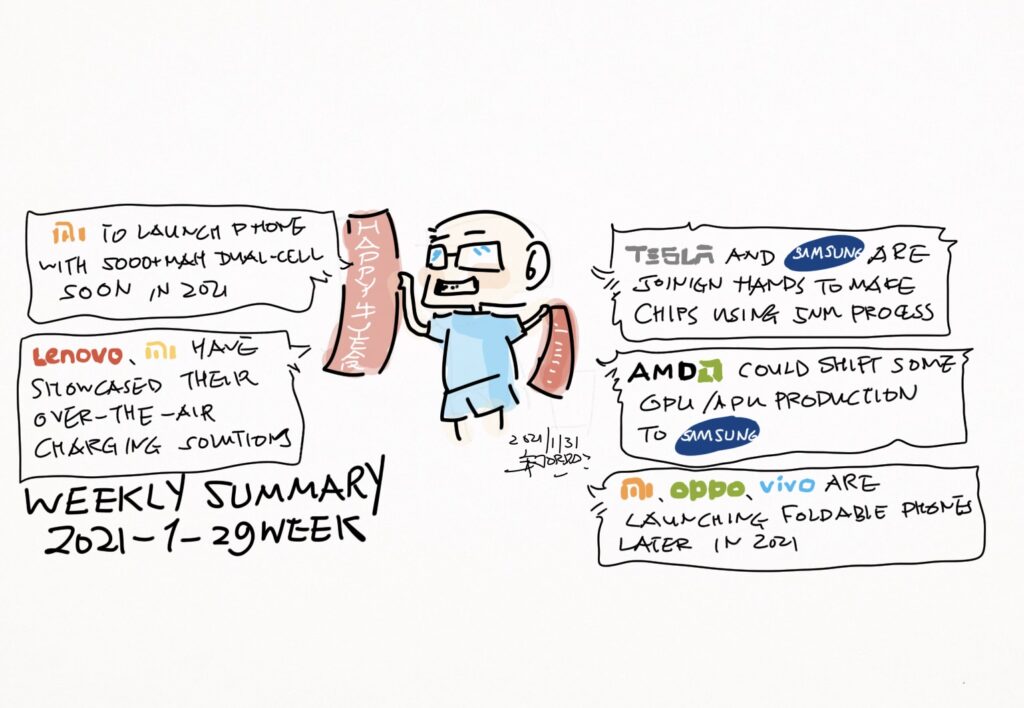 mi TO LAUNCH PHONE
WITH 5000+MAH DUAL-CELL
SOON IN 2021
Lenovo、mi HAVE
SHOWCASED THEIR
OVER-THE-AIR
CHARGING SOLUTIONS
WEEKLY SUMMARY
2021-1-29 WEEK
HAPPY 牛 YEAR
2021/1/31
TESLA AND SAMSUNG ARE
JOINIGN HANDS TO MAKE
CHIPS USING 5NM PROCESS
AMD COULD SHIFT SOME
GPU/APU PRODUCTION
TO SAMSUNG
mi、oppo、vivo ARE
LAUNCHING FOLDABLE PHONES
LATER IN 2021